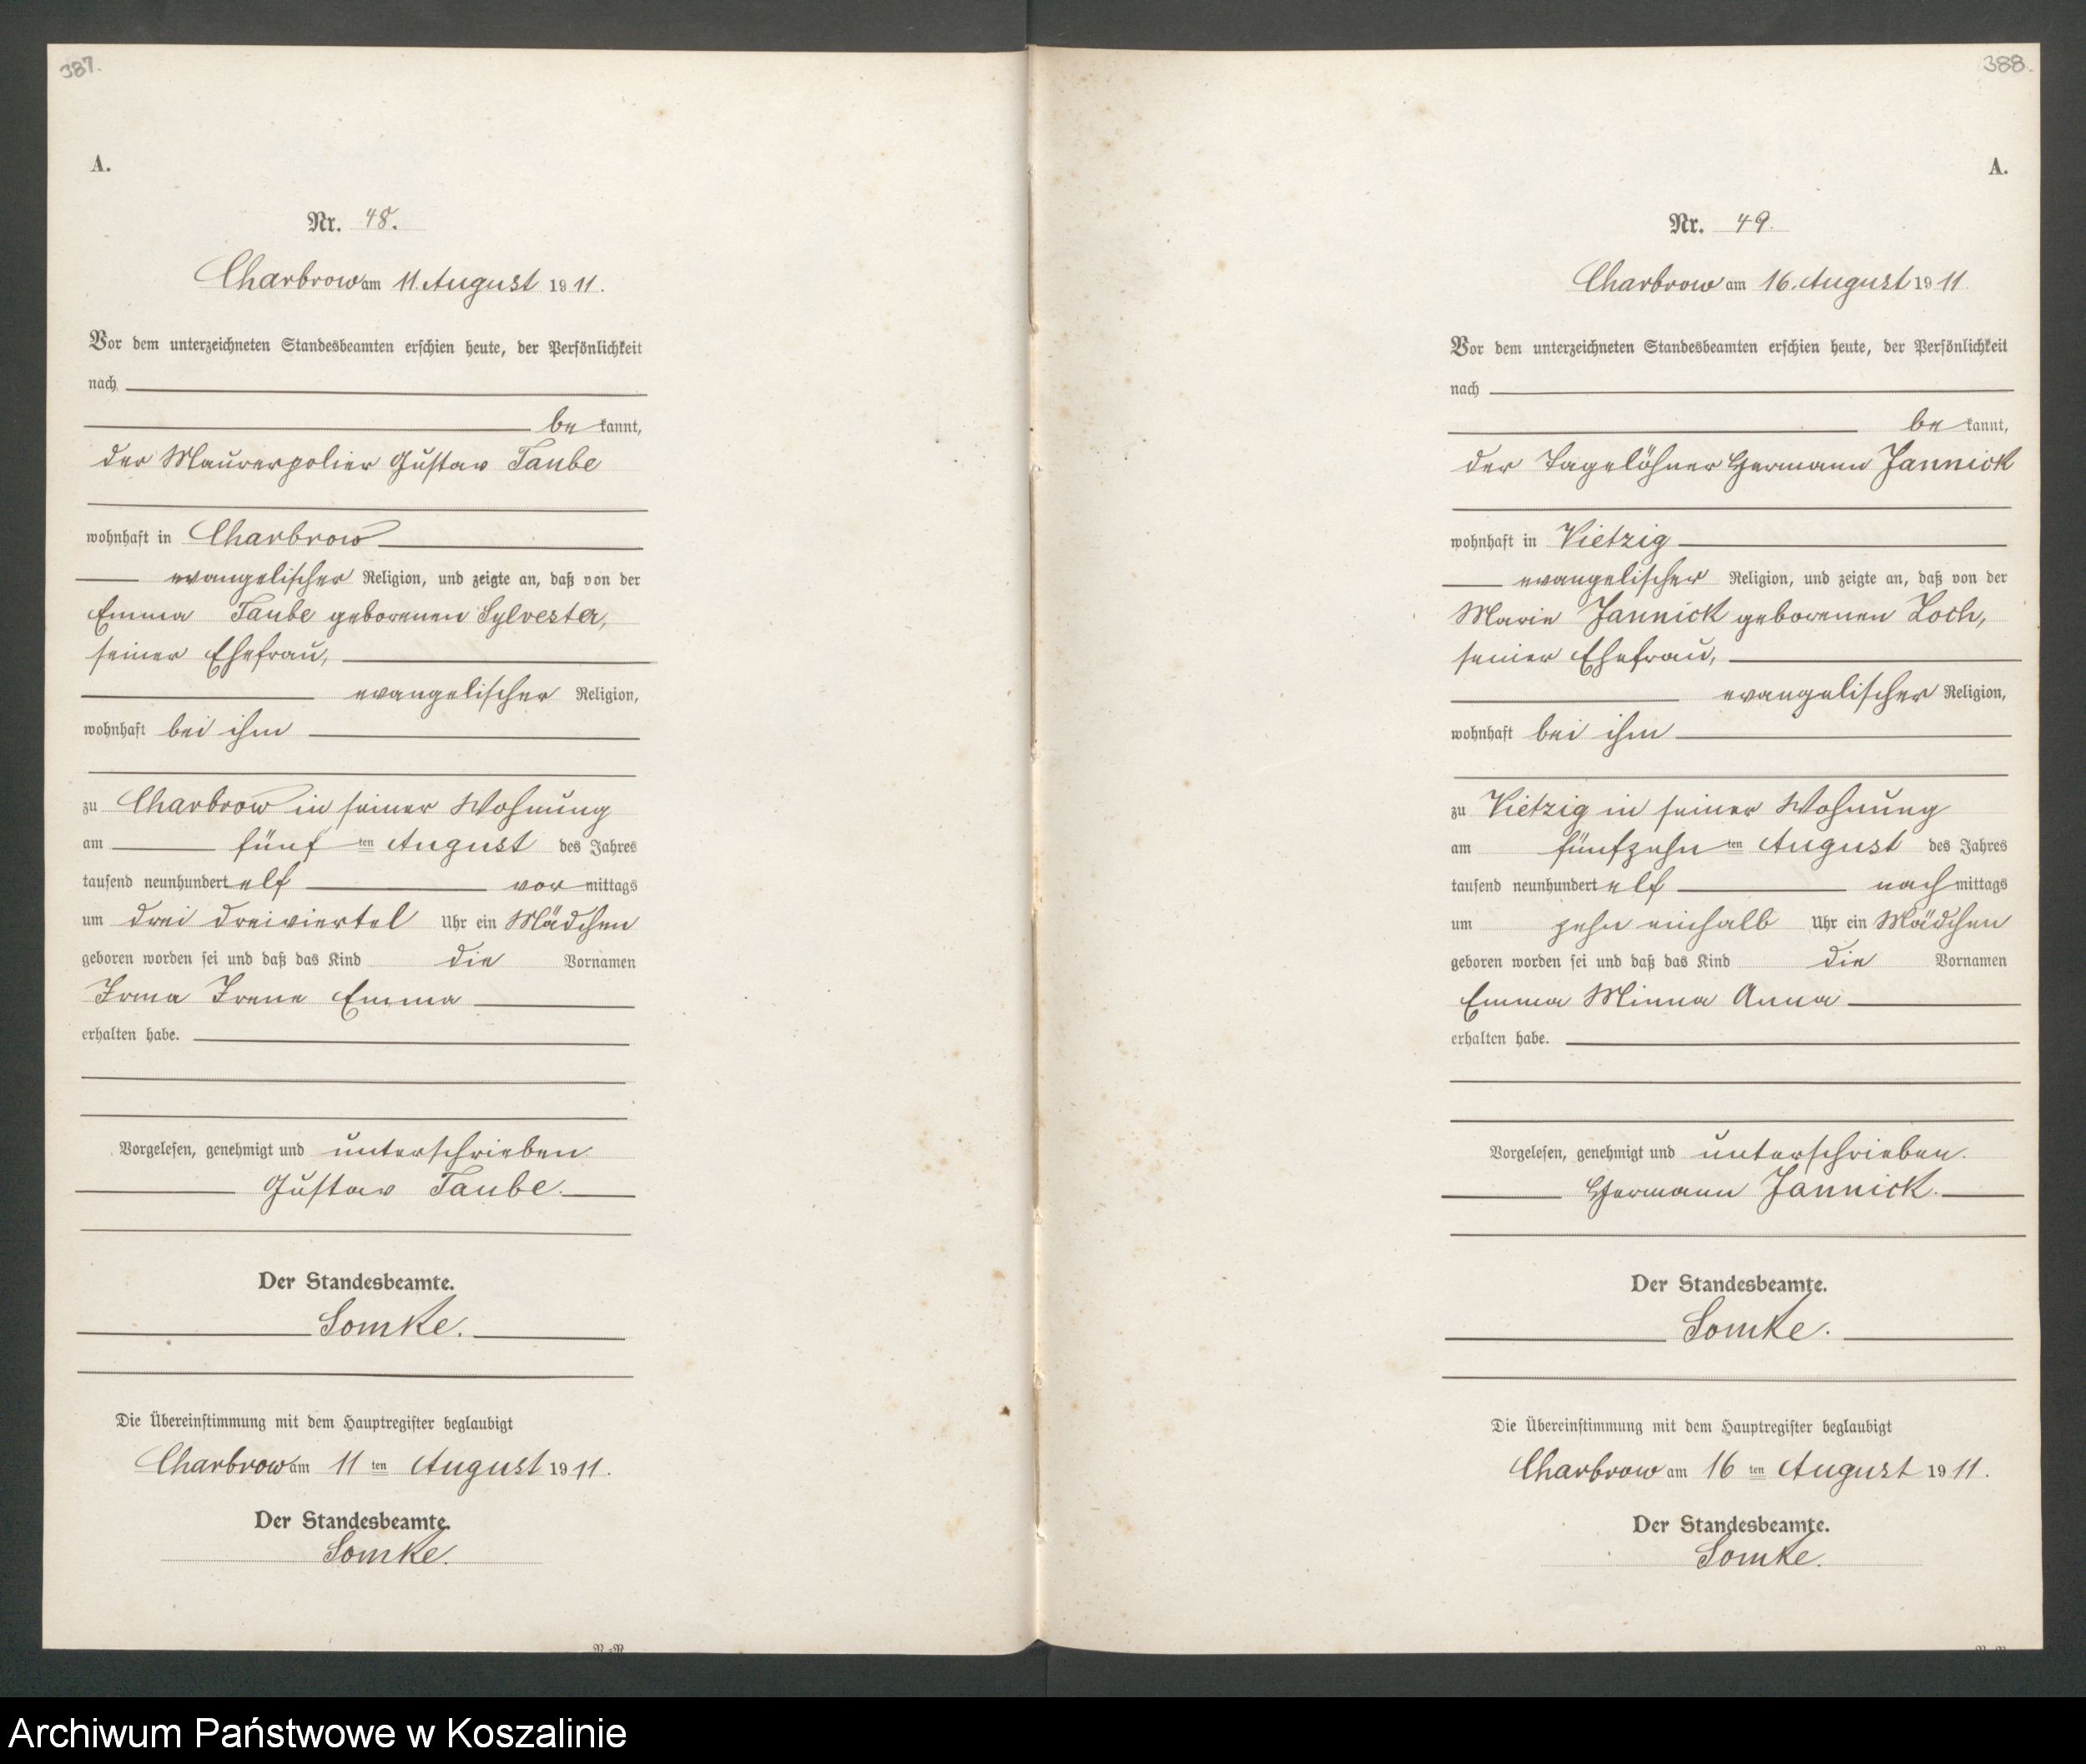 387.
A.
Nr. 48.
Charbrow am 11. August 1911.
Vor dem unterzeichneten Standesbeamten erschien heute, der Persönlichkeit
nach
be kannt,
der Maurerpolier Gustav Taube
wohnhaft in Charbrow
evangelischer Religion, und zeigte an, daß von der
Emma Taube geborenen Sylvester,
seiner Ehefrau,
evangelischer Religion,
wohnhaft bei ihm
zu Charbrow in seiner Wohnung
am fünf ten August des Jahres
tausend neunhundert elf vor mittags
um drei dreiviertel Uhr ein Mädchen
geboren worden sei und daß das Kind die Vornamen
Irma Irene Emma
erhalten habe.
Vorgelesen, genehmigt und unterschrieben
Gustav Taube.
Der Standesbeamte.
Somke.
Die Übereinstimmung mit dem Hauptregister beglaubigt
Charbrow am 11 ten August 1911.
Der Standesbeamte.
Somke.
388.
A.
Nr. 49.
Charbrow am 16. August 1911
Vor dem unterzeichneten Standesbeamten erschien heute, der Persönlichkeit
nach
be kannt,
der Tagelöhner Hermann Jannick
wohnhaft in Vietzig
evangelischer Religion, und zeigte an, daß von der
Marie Jannick geborenen Loch,
seiner Ehefrau,
evangelischer Religion,
wohnhaft bei ihm
zu Vietzig in seiner Wohnung
am fünfzehn ten August des Jahres
tausend neunhundert elf nach mittags
um zehn einhalb Uhr ein Mädchen
geboren worden sei und daß das Kind die Vornamen
Emma Minna Anna
erhalten habe.
Vorgelesen, genehmigt und unterschrieben.
Hermann Jannick.
Der Standesbeamte.
Somke.
Die Übereinstimmung mit dem Hauptregister beglaubigt
Charbrow am 16 ten August 1911.
Der Standesbeamte.
Somke.
Archiwum Państwowe w Koszalinie